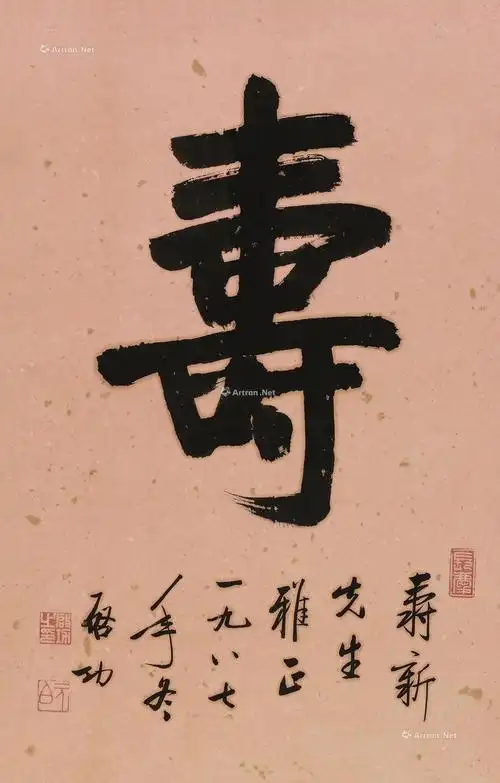 壽
壽新
先生
雅正
一九八七
年冬
啓功
Artron.Net
Artron.Net
Artron.Net